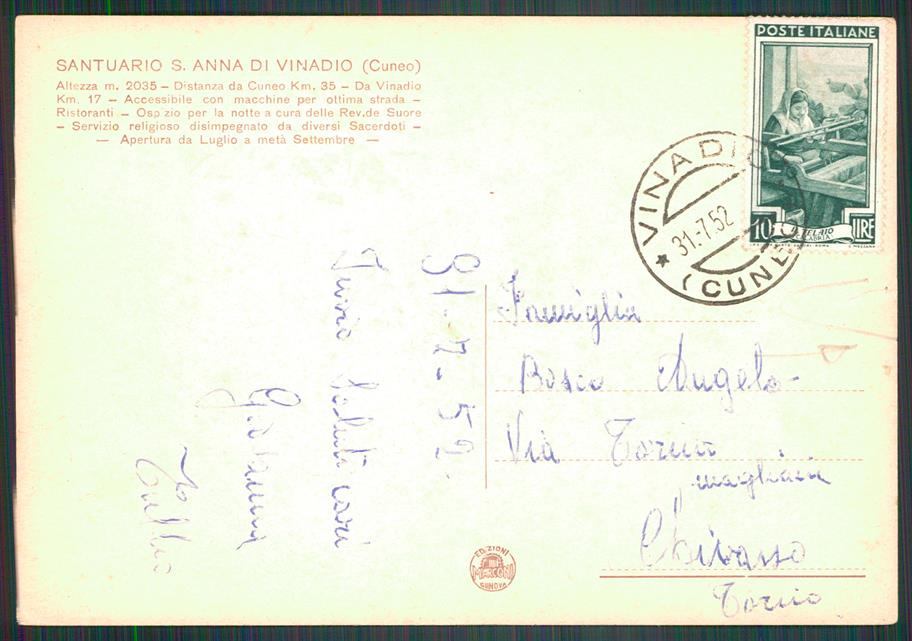 SANTUARIO S. ANNA DI VINADIO (Cuneo)
Altezza m. 2035 – Distanza da Cuneo Km. 35 – Da Vinadio
Km. 17 – Accessibile con macchine per ottima strada –
Ristoranti – Ospizio per la notte a cura delle Rev.de Suore
– Servizio religioso disimpegnato da diversi Sacerdoti –
— Apertura da Luglio a metà Settembre —
POSTE ITALIANE
10 LIRE
IL TELAIO
CALABRIA
VINADIO
31.-7.52
(CUNEO)
31-7-52
Invio saluti cari
Giovanna
Tullio
Famiglia
Bosco Angelo
Via Torino
maglieria
Chivasso
Torino
EDIZIONI
MARCONI
GENOVA